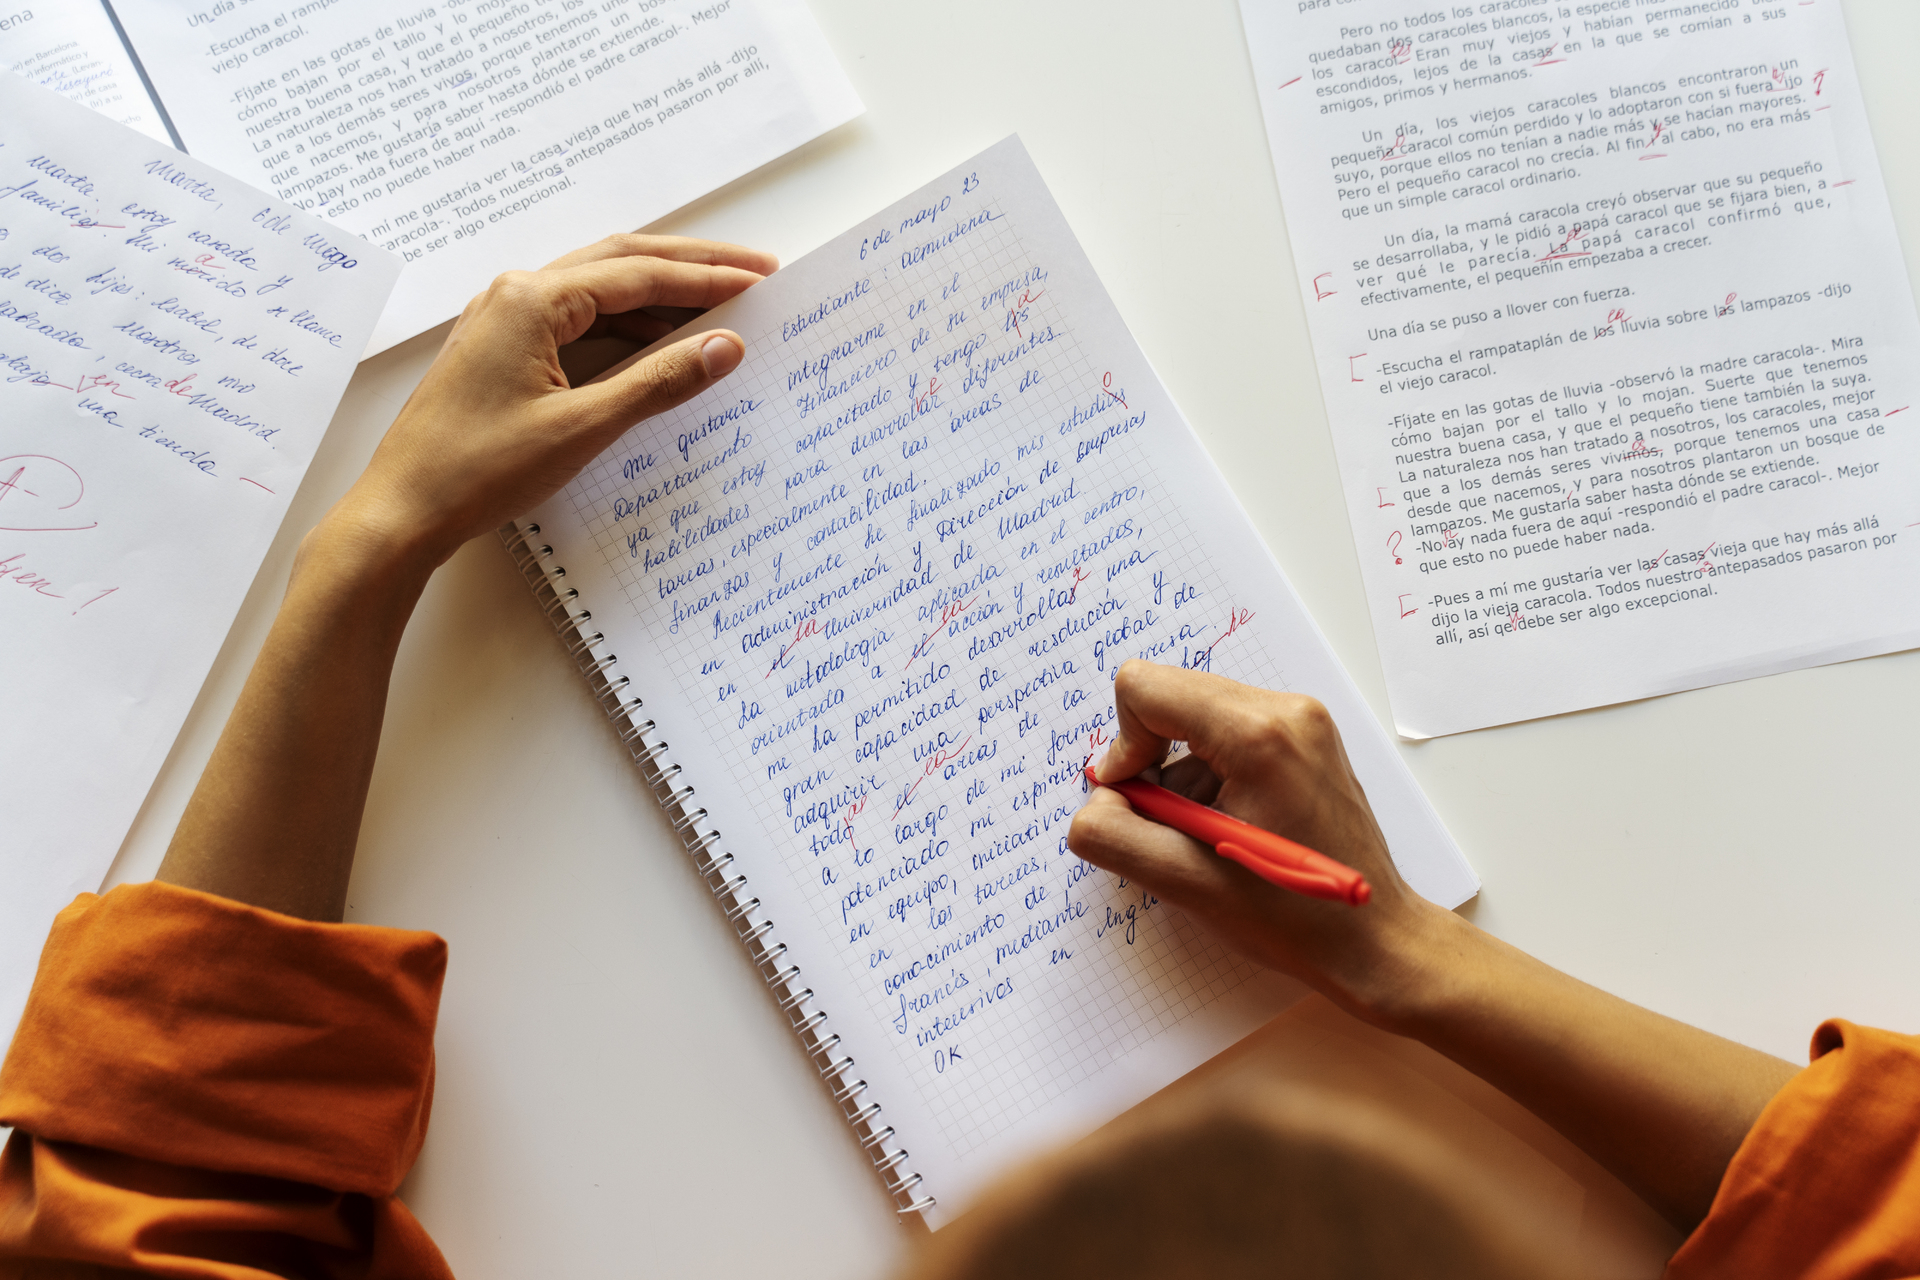 ena
en Barcelona.
informático y
Un día se
-Escucha el rampata
viejo caracol.
-Fíjate en las gotas de lluvia
cómo bajan por el tallo y lo mojan
nuestra buena casa, y que el pequeño tiene
La naturaleza nos han tratado a nosotros, los
que a los demás seres vivos, porque tenemos una
que nacemos, y para nosotros plantaron un
lampazos. Me gustaría saber hasta dónde se extiende.
-No hay nada fuera de aquí -respondió el padre caracol-. Mejor
esto no puede haber nada.
a mí me gustaría ver la casa vieja que hay más allá -dijo
caracola-. Todos nuestros antepasados pasaron por allí,
be ser algo excepcional.
Marta, 6 de mayo
Marta. estoy casada y
familier. Mi merido a se llama
dos hijos: Isabel, de doce
de diez
cerca de Madrid.
en una tienda
A-
bien!
6 de mayo 23
Estudiante: Aemudena
Me gustaria integrarme en el
Departamento Financiero de su empresa,
ya que estoy capacitado y tengo los a
habilidades para desarrollar diferentes
tareas, especialmente en las áreas de
finanzas y contabilidad.
Recientemente he finalizado mis estudios o
en administración y Dirección de Empresas
en el la Universidad de Madrid.
La metodología aplicada en el centro,
orientada a el la acción y resultados,
me ha permitido desarrollas r una
gran capacidad de resducción y
adquirir una perspectiva global de
todo as el la areas de la empresa.
a lo largo de mi formac hay he
potenciado mi espiritu
en equipo, iniciativa
en las tareas, a
cono-cimiento de idi
francés, mediante
intensivos en Ingl
OK
para con
Pero no todos los caracoles
quedaban dos caracoles blancos, la especie más
los caracol. Eran muy viejos y habían permanecido
escondidos, lejos de la casas en la que se comían a sus
amigos, primos y hermanos.
Un día, los viejos caracoles blancos encontraron un
pequeña caracol común perdido y lo adoptaron con si fuera ijo ?
suyo, porque ellos no tenían a nadie más y se hacían mayores.
Pero el pequeño caracol no crecía. Al fin y al cabo, no era más
que un simple caracol ordinario.
Un día, la mamá caracola creyó observar que su pequeño
se desarrollaba, y le pidió a papá caracol que se fijara bien, a
ver qué le parecía. La papá caracol confirmó que,
efectivamente, el pequeñin empezaba a crecer.
Una día se puso a llover con fuerza.
-Escucha el rampataplán de los la lluvia sobre las lampazos -dijo
el viejo caracol.
-Fíjate en las gotas de lluvia -observó la madre caracola-. Mira
cómo bajan por el tallo y lo mojan. Suerte que tenemos
nuestra buena casa, y que el pequeño tiene también la suya.
La naturaleza nos han tratado a nosotros, los caracoles, mejor
que a los demás seres vivimos, porque tenemos una casa
desde que nacemos, y para nosotros plantaron un bosque de
lampazos. Me gustaría saber hasta dónde se extiende.
? -No ay nada fuera de aquí -respondió el padre caracol-. Mejor
que esto no puede haber nada.
-Pues a mí me gustaría ver las casas vieja que hay más allá
dijo la vieja caracola. Todos nuestro antepasados pasaron por
allí, así qe debe ser algo excepcional.